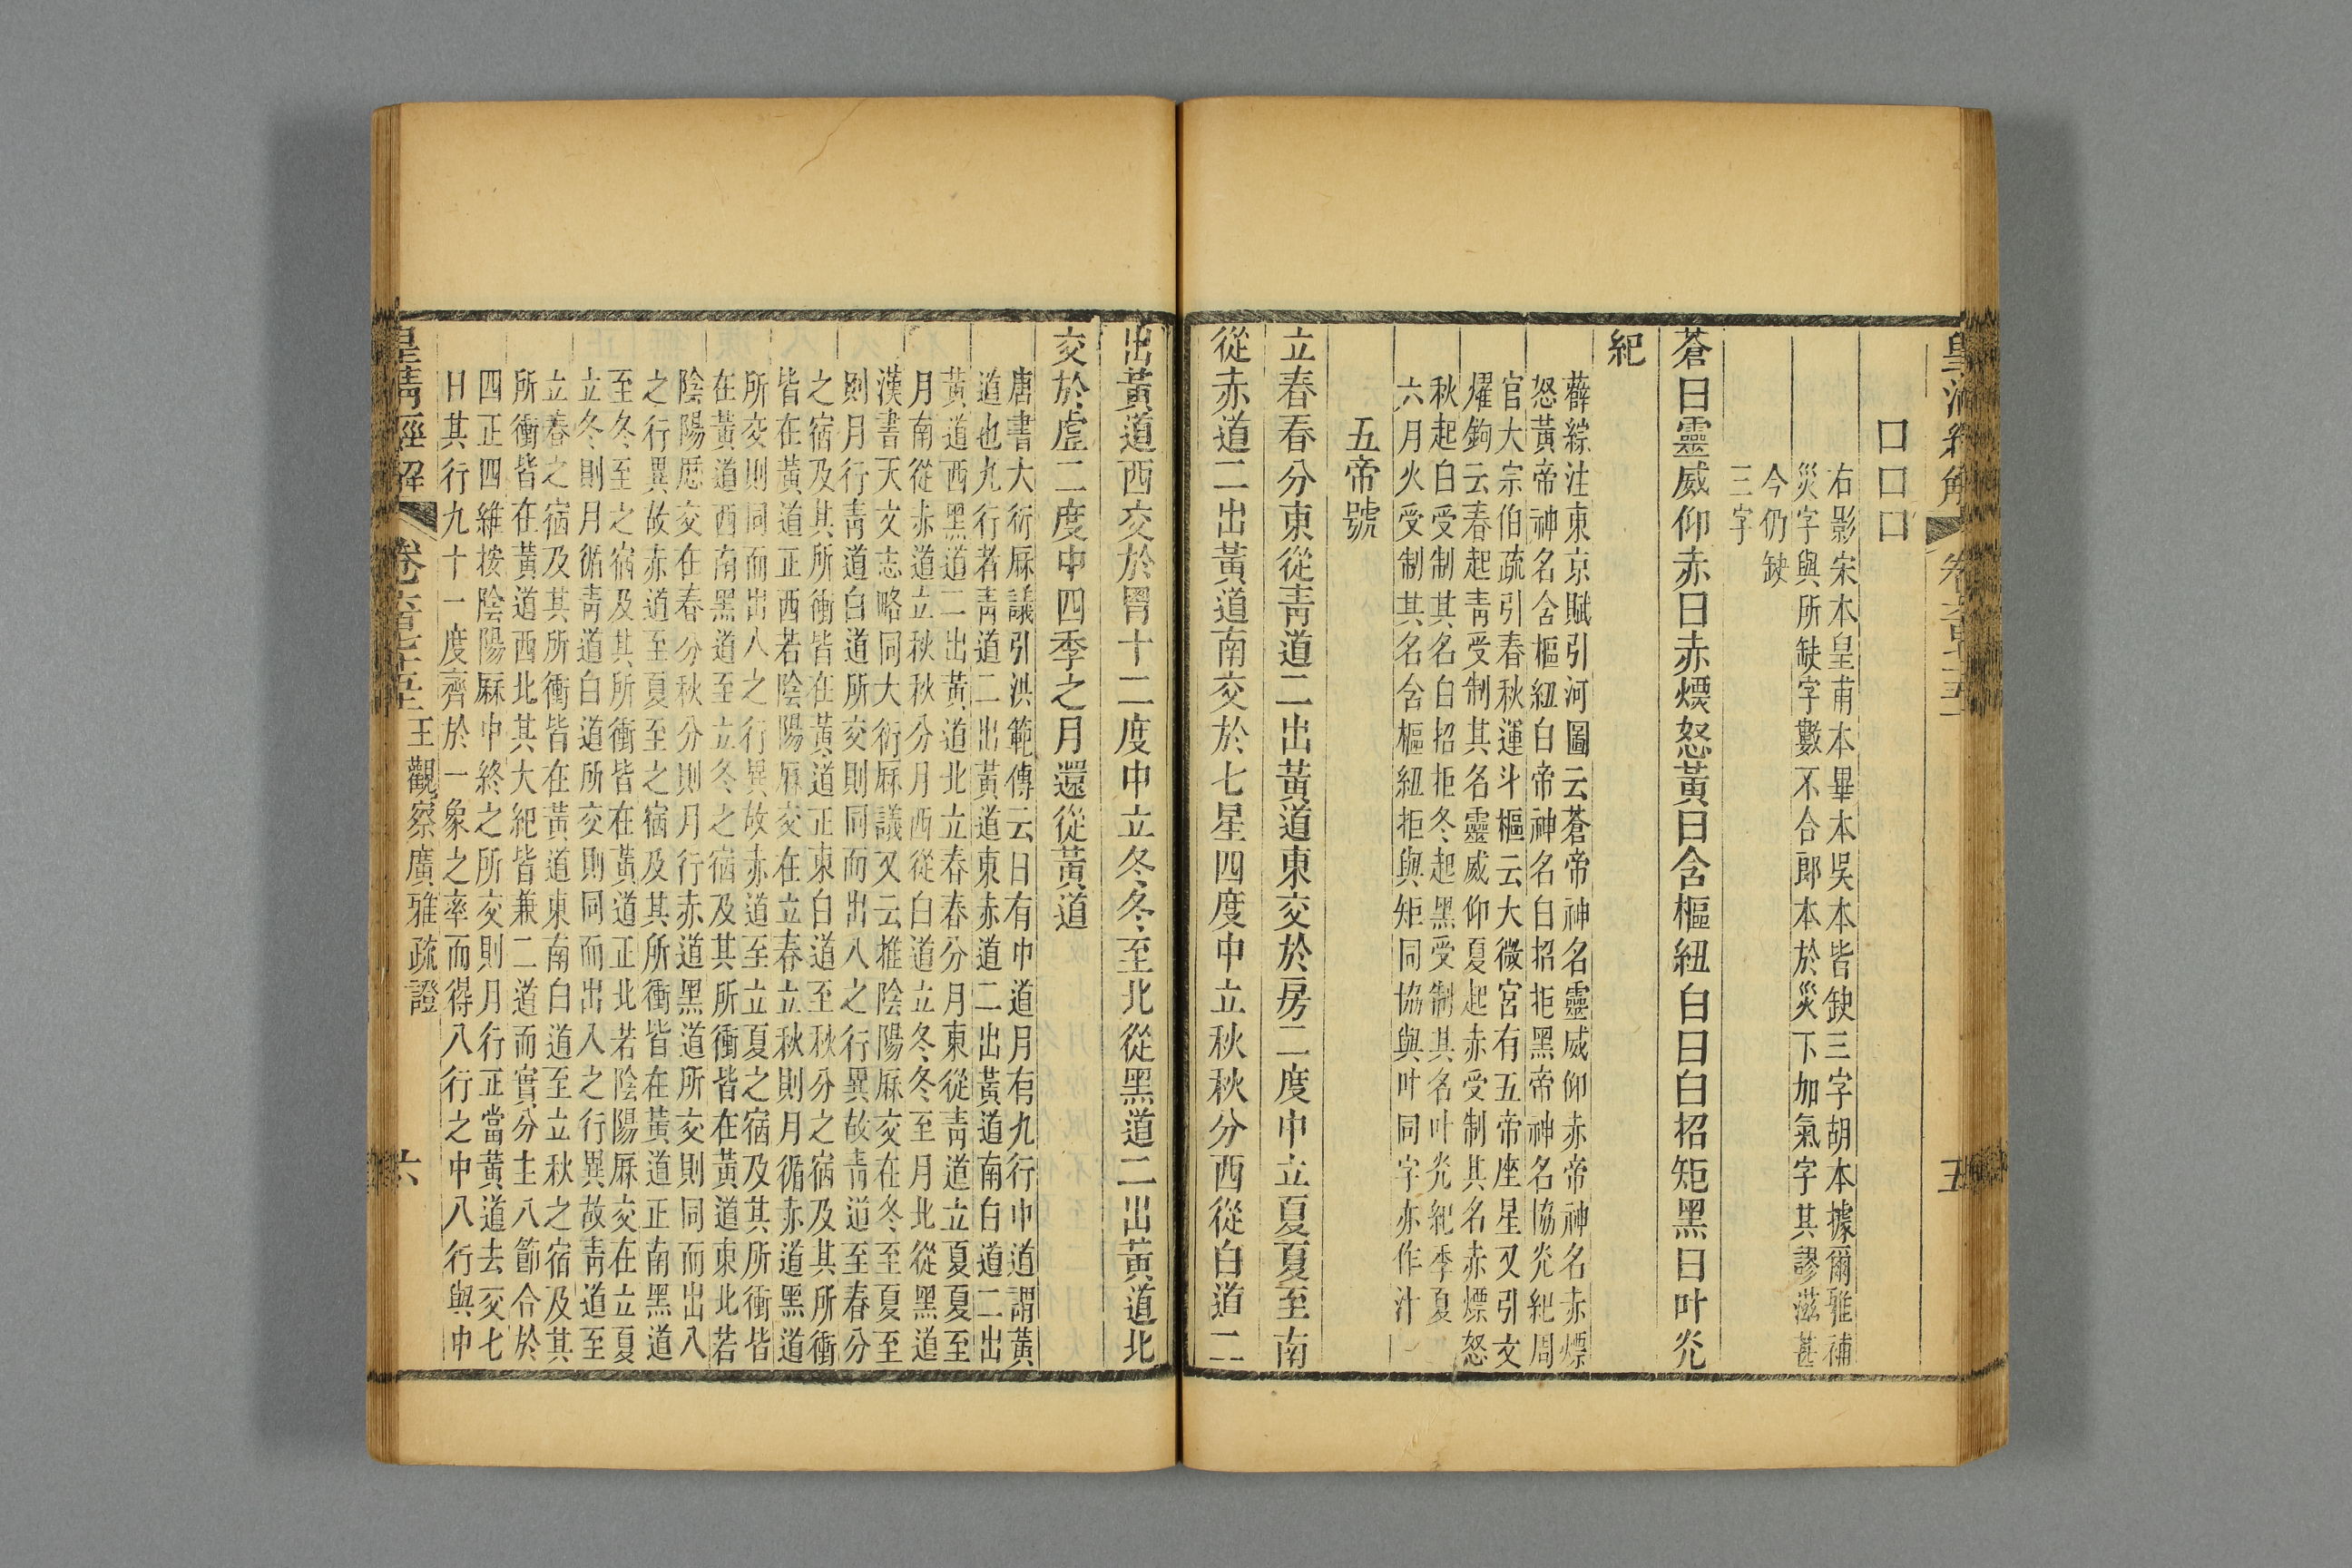 囗囗囗
右影宋本皇甫本畢本吳本皆缺三字胡本據爾雅補
災字與所缺字數不合郎本於災下加氣字其謬滋甚
今仍缺
三字
蒼曰靈威仰赤曰赤熛怒黃曰含樞紐白曰白招矩黑曰叶光
紀
薛綜注東京賦引河圖云蒼帝神名靈威仰赤帝神名赤熛
怒黃帝神名含樞紐白帝神名白招拒黑帝神名協光紀周
官大宗伯疏引春秋運斗樞云大微宮有五帝座星又引文
燿鉤云春起青受制其名靈威仰夏起赤受制其名赤熛怒
秋起白受制其名白招拒冬起黑受制其名叶光紀季夏
六月火受制其名含樞紐拒與矩同協與叶同字亦作汁
五帝號
立春春分東從青道二出黃道東交於房二度中立夏夏至南
從赤道二出黃道南交於七星四度中立秋秋分西從白道二
出黃道西交於胃十二度中立冬冬至北從黑道二出黃道北
交於虛二度中四季之月還從黃道
唐書大衍厤議引洪範傳云日有中道月有九行中道謂黃
道也九行者青道二出黃道東赤道二出黃道南白道二出
黃道西黑道二出黃道北立春春分月東從青道立夏夏至
月南從赤道立秋秋分月西從白道立冬冬至月北從黑道
漢書天文志略同大衍厤議又云推陰陽厤交在冬至夏至
則月行青道白道所交則同而出入之行異故青道至春分
之宿及其所衝皆在黃道正東白道至秋分之宿及其所衝
皆在黃道正西若陰陽厤交在立春立秋則月循赤道黑道
所交則同而出入之行異故赤道至立夏之宿及其所衝皆
在黃道西南黑道至立冬之宿及其所衝皆在黃道東北若
陰陽厤交在春分秋分則月行赤道黑道所交則同而出入
之行異故赤道至夏至之宿及其所衝皆在黃道正南黑道
至冬至之宿及其所衝皆在黃道正北若陰陽厤交在立夏
立冬則月循青道白道所交則同而出入之行異故青道至
立春之宿及其所衝皆在黃道東南白道至立秋之宿及其
所衝皆在黃道西北其大紀皆兼二道而實分主八節合於
四正四維按陰陽厤中終之所交則月行正當黃道去交七
日其行九十一度齊於一象之率而得八行之中八行與中
皇清經解
王觀察廣雅疏證
六